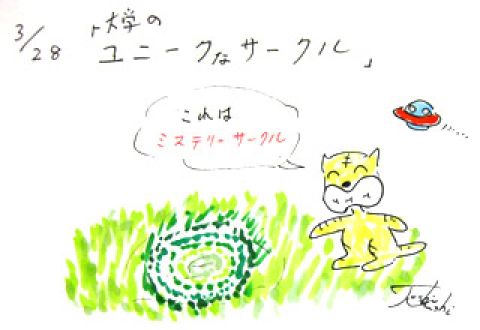 3/28
「大学の
ユニークなサークル」
これは
ミステリーサークル